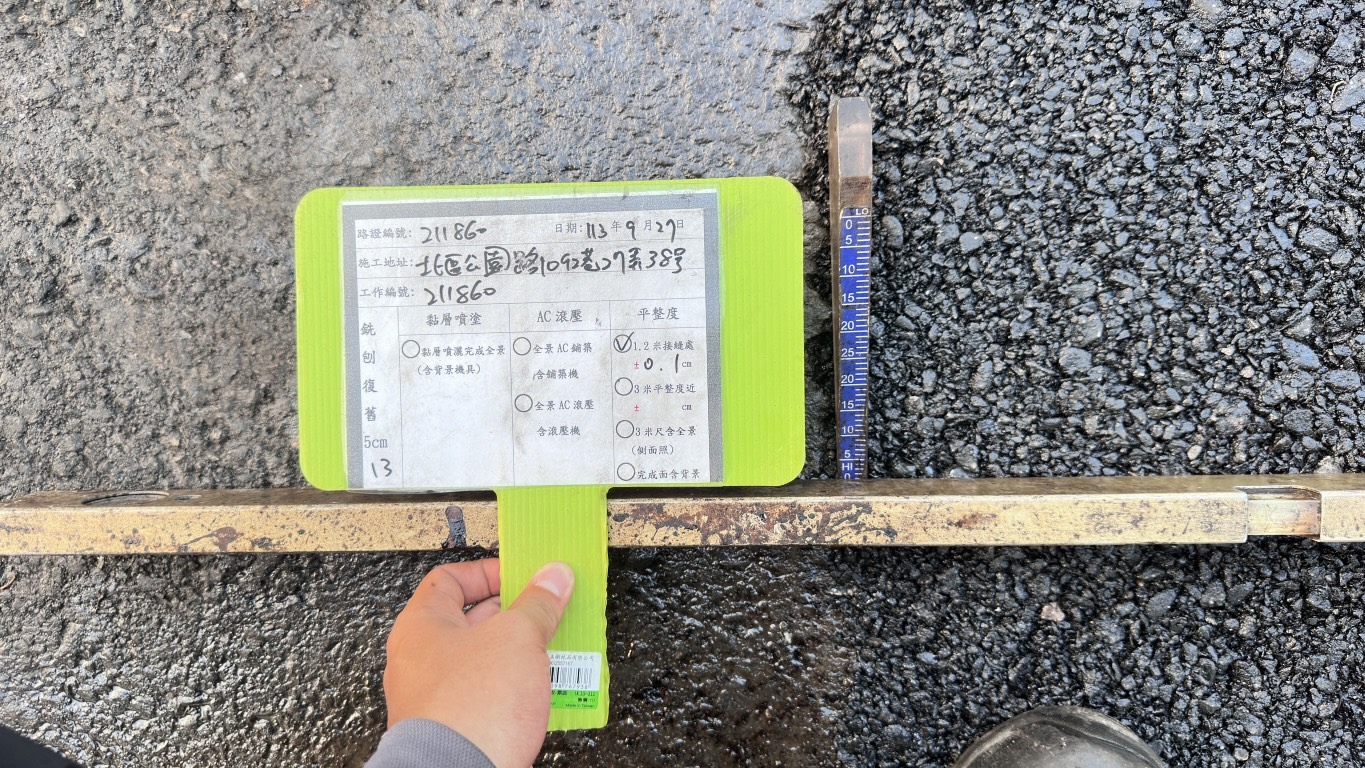 路證編號: 211860 日期: 113年9月27日
施工地址: 北區公園路1092巷27弄38號
工作編號: 211860
銑刨復舊5cm
13
黏層噴塗
AC滾壓
平整度
黏層噴灑完成全景
(含背景機具)
全景AC鋪築
含鋪築機
全景AC滾壓
含滾壓機
1.2米接縫處
±0.1cm
3米平整度近
± cm
3米尺含全景
(側面照)
完成面含背景
LO
0
5
10
15
20
25
20
15
10
5
HI
0